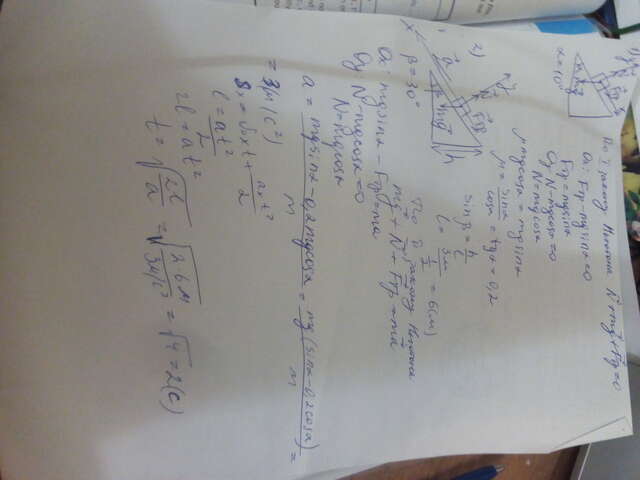 1)
α=10°
По I закону Ньютона N+mg+Fтр=0
Ox: Fтр-mgsinα=0
Fтр=mgsinα
Oy: N-mgcosα=0
N=mgcosα
μmgcosα=mgsinα
μ=sinα/cosα=tgα=0,2
2)
β=30°
sinβ=h/l
l=3м/(1/2)=6(м)
По II закону Ньютона
mg+N+Fтр=ma
Ox: mgsinα-Fтр=ma
Oy: N-mgcosα=0
N=mgcosα
a=(mgsinα-0,2mgcosα)/m=mg(sinα-0,2cosα)/m=
=3м/(с²)
Sx=v₀xt+axt²/2
l=at²/2
2l=at²
t=√(2l/a)=√(2·6м/3м/с²)=√4=2(с)